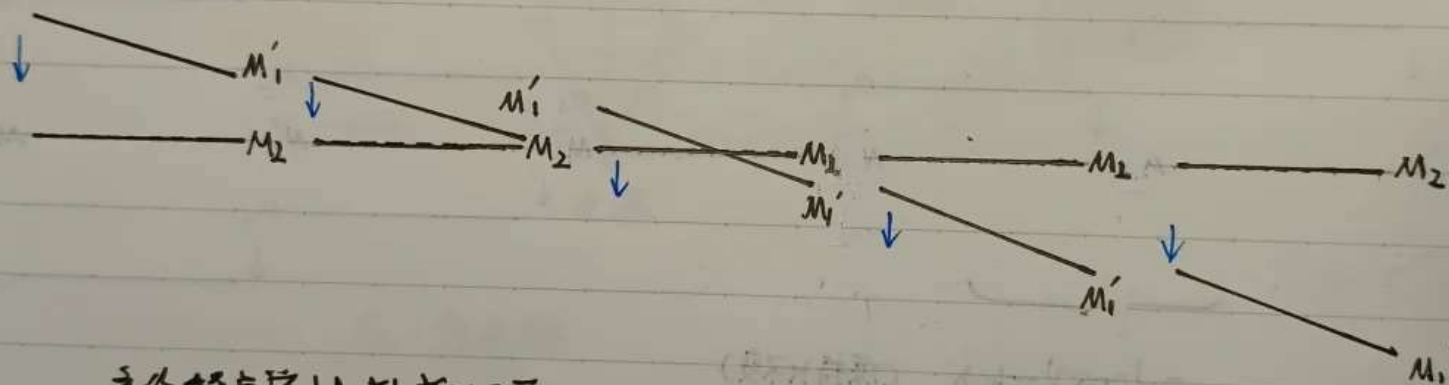 M₁′
M₁′
M₂ M₂ M₂ M₂ M₂
M₁′
M₁′
M₁